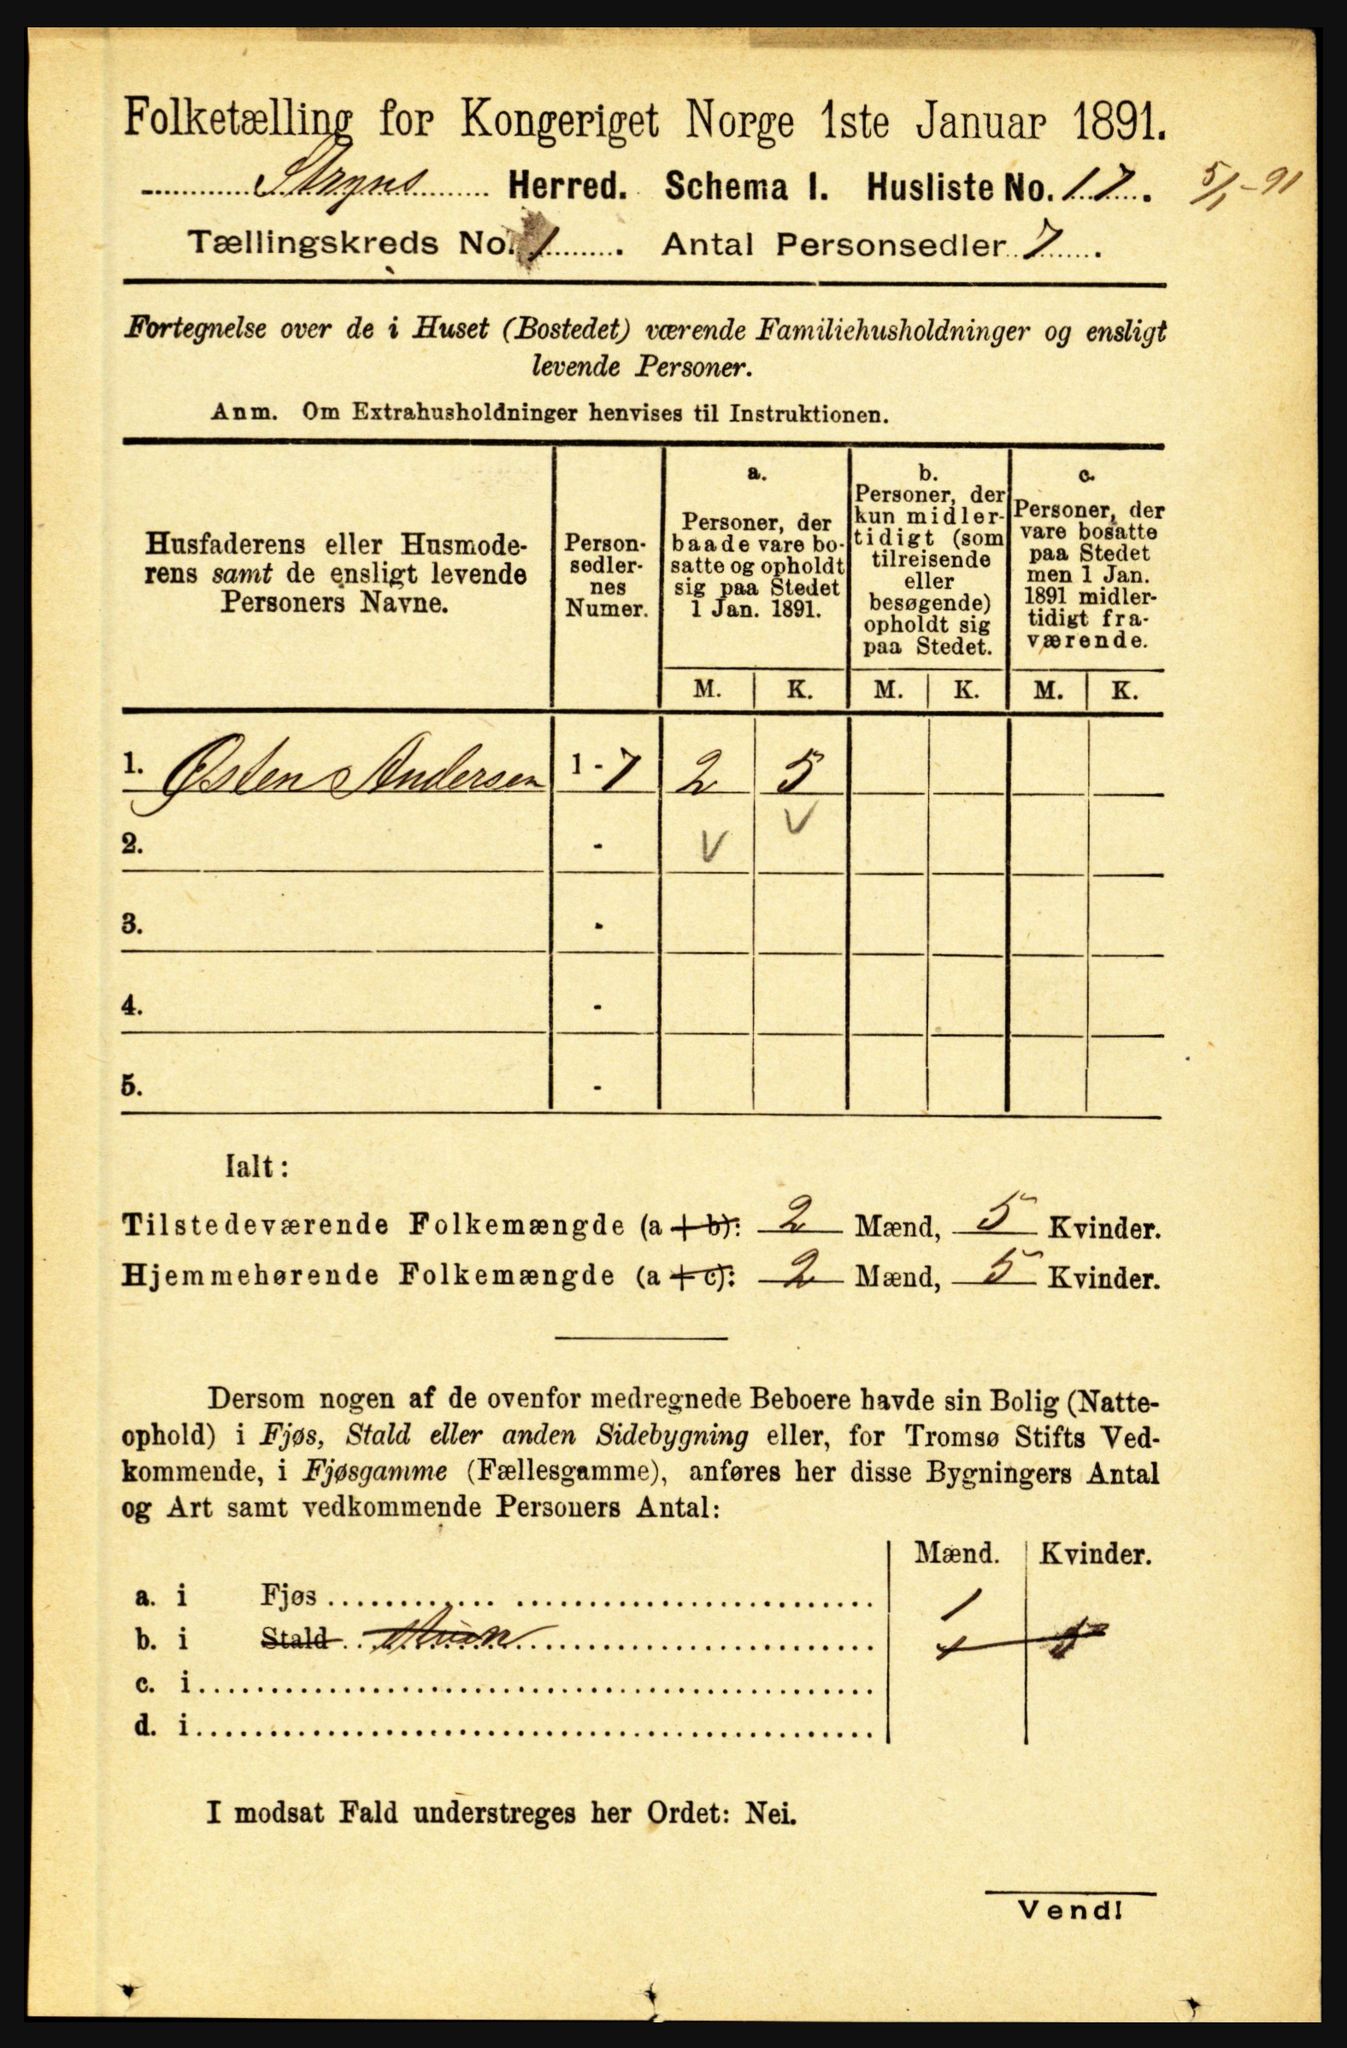 Folketælling for Kongeriget Norge 1ste Januar 1891.
Stryns Herred. Schema 1. Husliste No. 17. 5/1-91
Tællingskreds No. 1. Antal Personsedler 7.
Fortegnelse over de i Huset (Bostedet) værende Familiehusholdninger og ensligt
levende Personer.
Anm. Om Extrahusholdninger henvises til Instruktionen.
Husfaderens eller Husmode-
rens samt de ensligt levende
Personers Navne.
Person-
sedler-
nes
Numer.
a.
Personer, der
baade vare bo-
satte og opholdt
sig paa Stedet
1 Jan. 1891.
b.
Personer, der
kun midler-
tidigt (som
tilreisende
eller
besøgende)
opholdt sig
paa Stedet.
c.
Personer, der
vare bosatte
paa Stedet
men 1 Jan.
1891 midler-
tidigt fra-
værende.
M. K. M. K. M. K.
1. Østen Andersen 1-7 2 5
2. - V V
3. -
4. -
5. -
Ialt:
Tilstedeværende Folkemængde (a + b): 2 Mænd, 5 Kvinder.
Hjemmehørende Folkemængde (a + c): 2 Mænd, 5 Kvinder.
Dersom nogen af de ovenfor medregnede Beboere havde sin Bolig (Natte-
ophold) i Fjøs, Stald eller anden Sidebygning eller, for Tromsø Stifts Ved-
kommende, i Fjøsgamme (Fællesgamme), anføres her disse Bygningers Antal
og Art samt vedkommende Personers Antal:
Mænd. Kvinder.
a. i Fjøs 1
b. i Stald
c. i
d. i
I modsat Fald understreges her Ordet: Nei.
Vend!